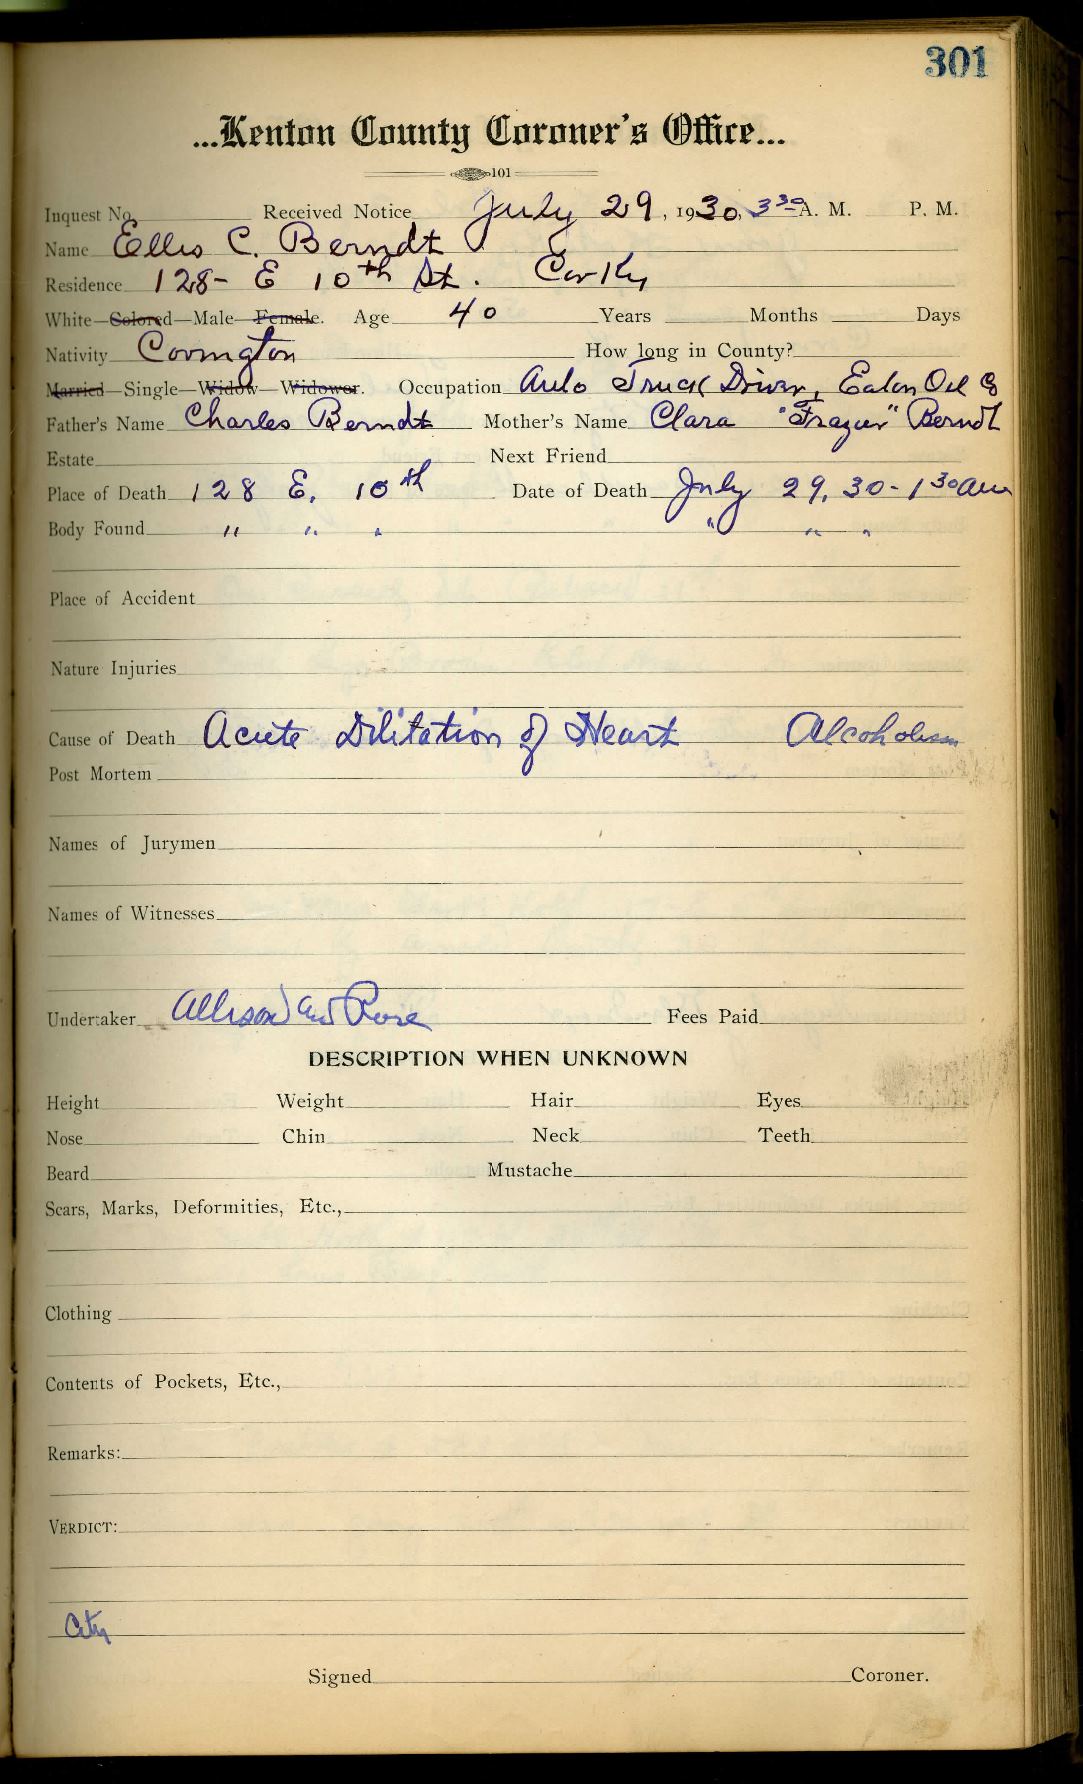 301
...Kenton County Coroner's Office...
101
Inquest No. Received Notice July 29, 1930, 3 30 A. M. P. M.
Name Ellis C. Berndt
Residence 128- E 10th St. Cov Ky
White—Colored—Male—Female. Age 40 Years Months Days
Nativity Covington How long in County?
Married—Single—Widow—Widower. Occupation Auto Truck Driver, Eaton Oil Co
Father's Name Charles Berndt Mother's Name Clara "Frazier" Berndt
Estate Next Friend
Place of Death 128 E. 10th Date of Death July 29, 30 - 1 30 am
Body Found " " " " " "
Place of Accident
Nature Injuries
Cause of Death Acute Dilitation of Heart Alcoholism
Post Mortem
Names of Jurymen
Names of Witnesses
Undertaker Allison and Rose Fees Paid
DESCRIPTION WHEN UNKNOWN
Height Weight Hair Eyes
Nose Chin Neck Teeth
Beard Mustache
Scars, Marks, Deformities, Etc.,
Clothing
Contents of Pockets, Etc.,
Remarks:
VERDICT:
City
Signed Coroner.